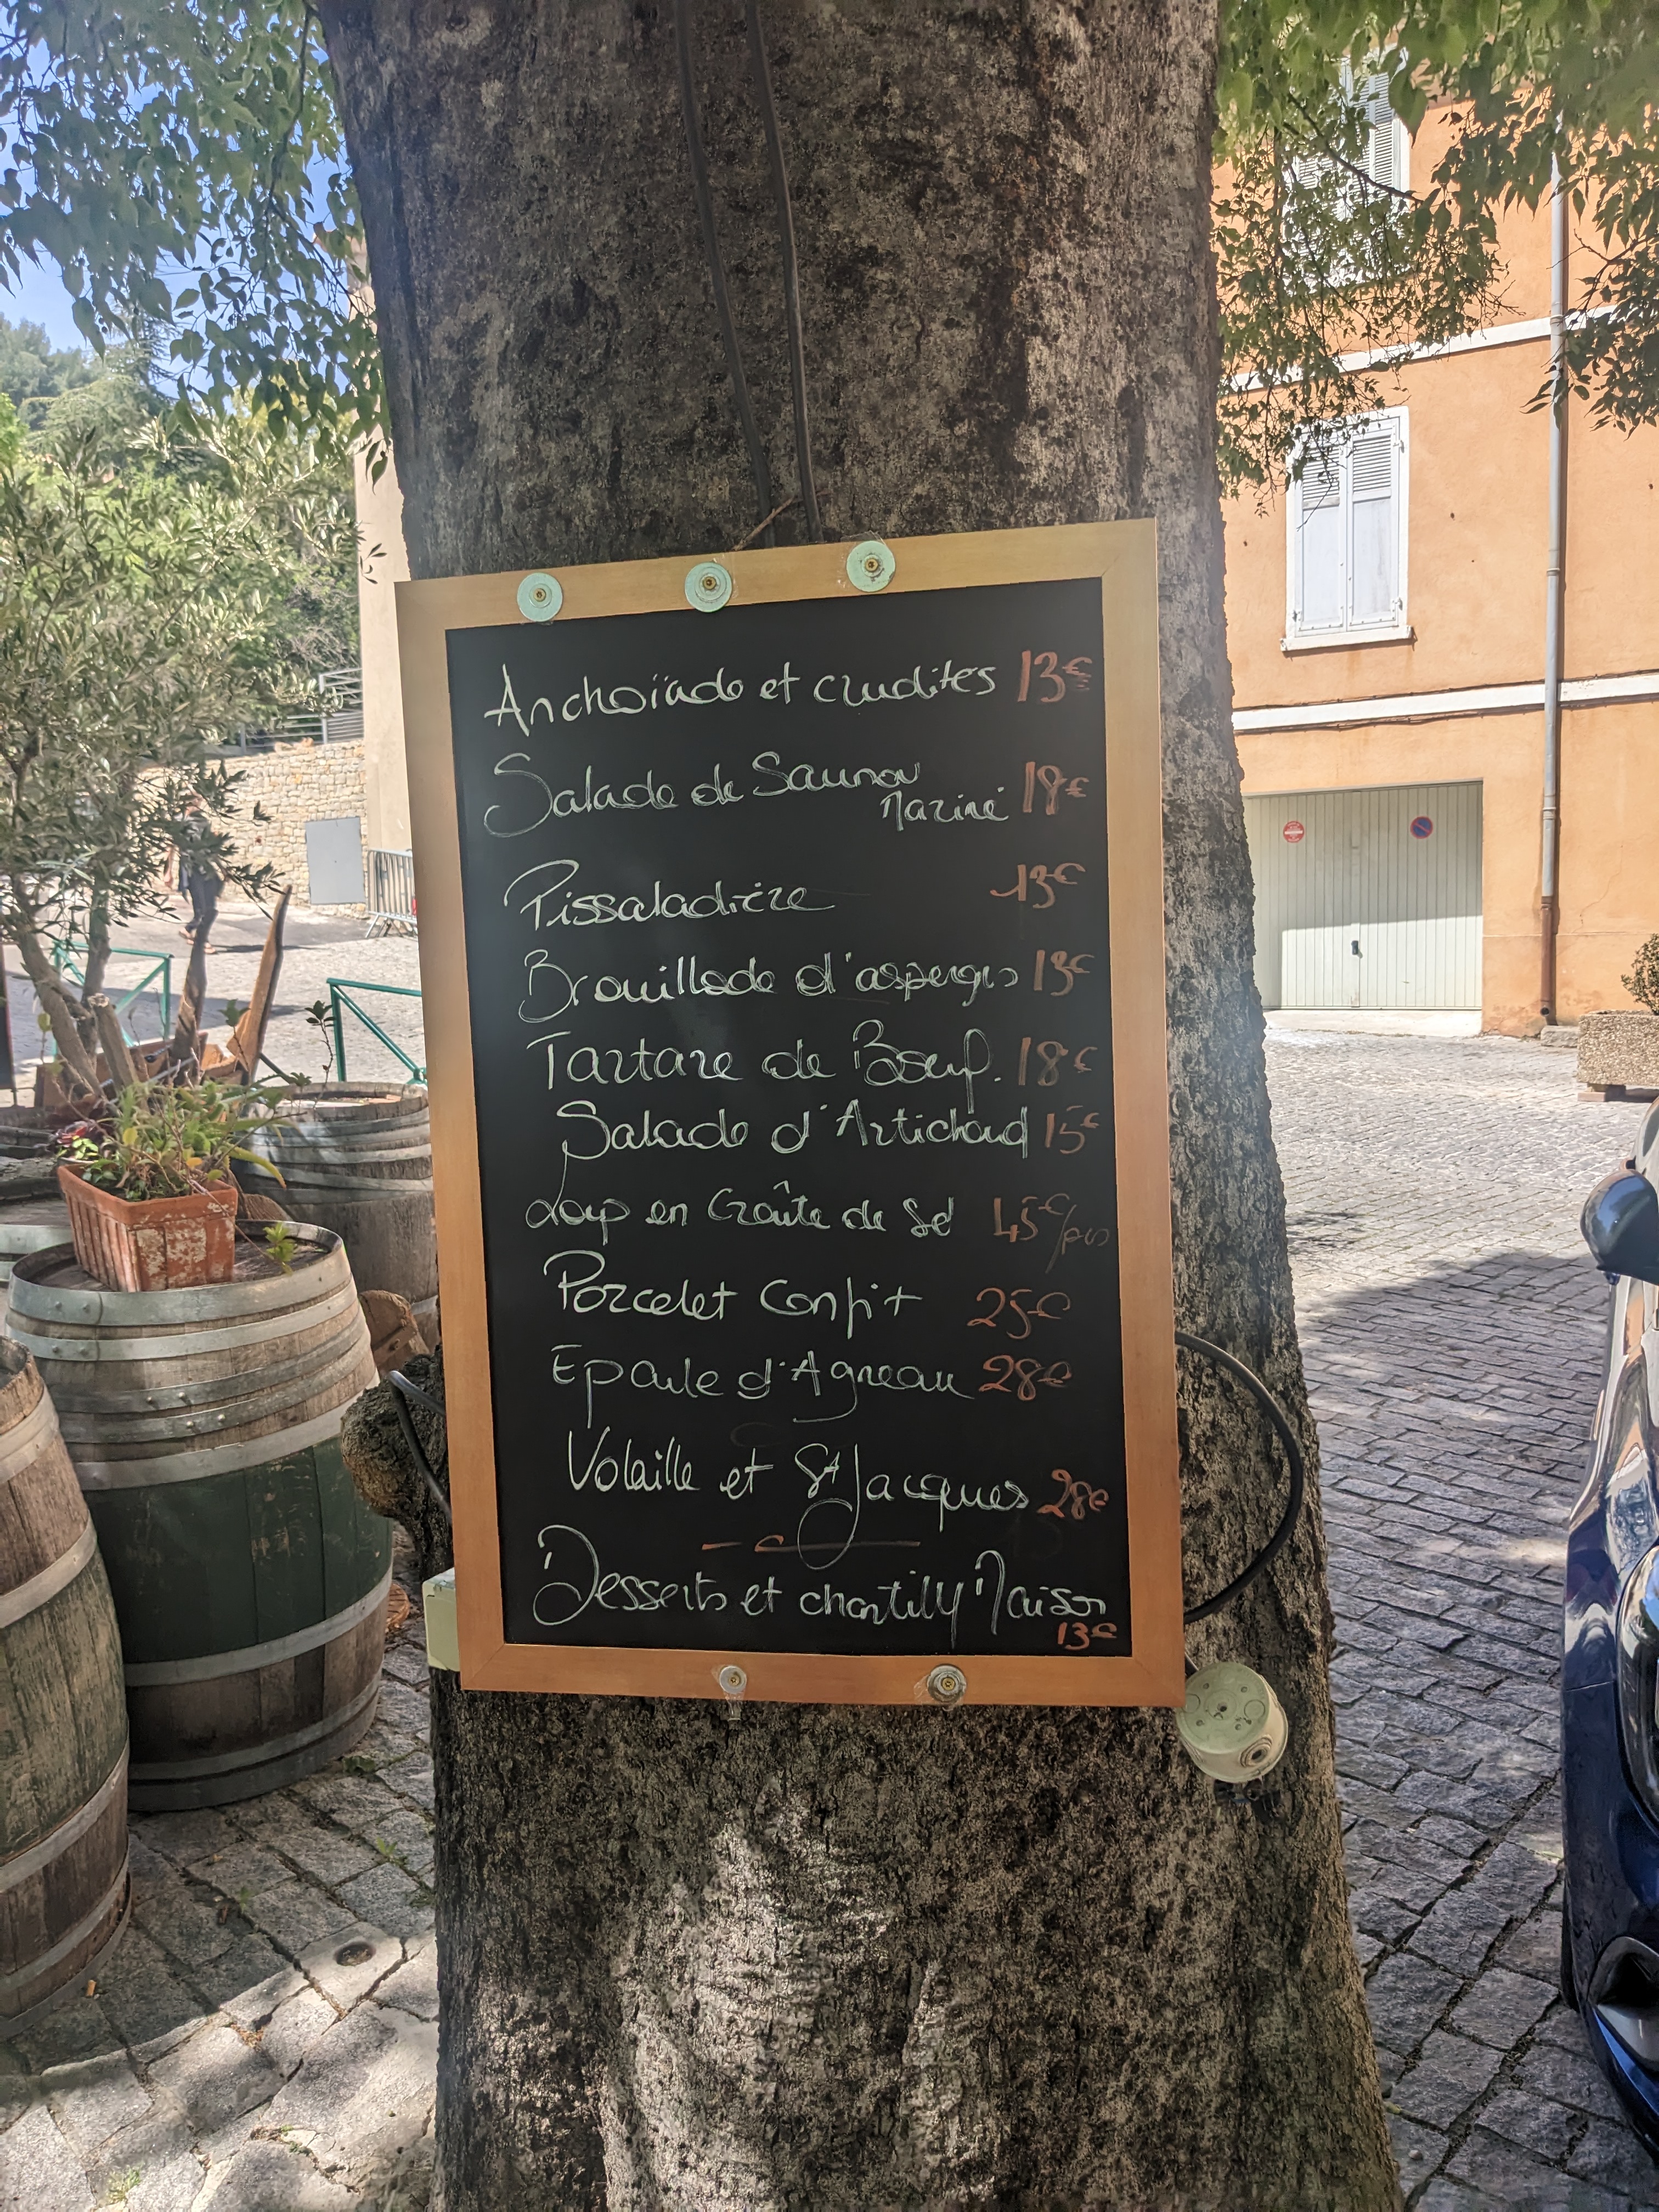 Anchoïade et crudités 13€
Salade de Saumon
Mariné 18€
Pissaladière 13€
Brouillade d'asperges 13€
Tartare de Boeuf. 18€
Salade d'Artichaud 15€
Loup en Croûte de Sel 45€/pers
Porcelet Confit 25€
Epaule d'Agneau 28€
Volaille et St Jacques 28€
Desserts et chantilly Maison
13€